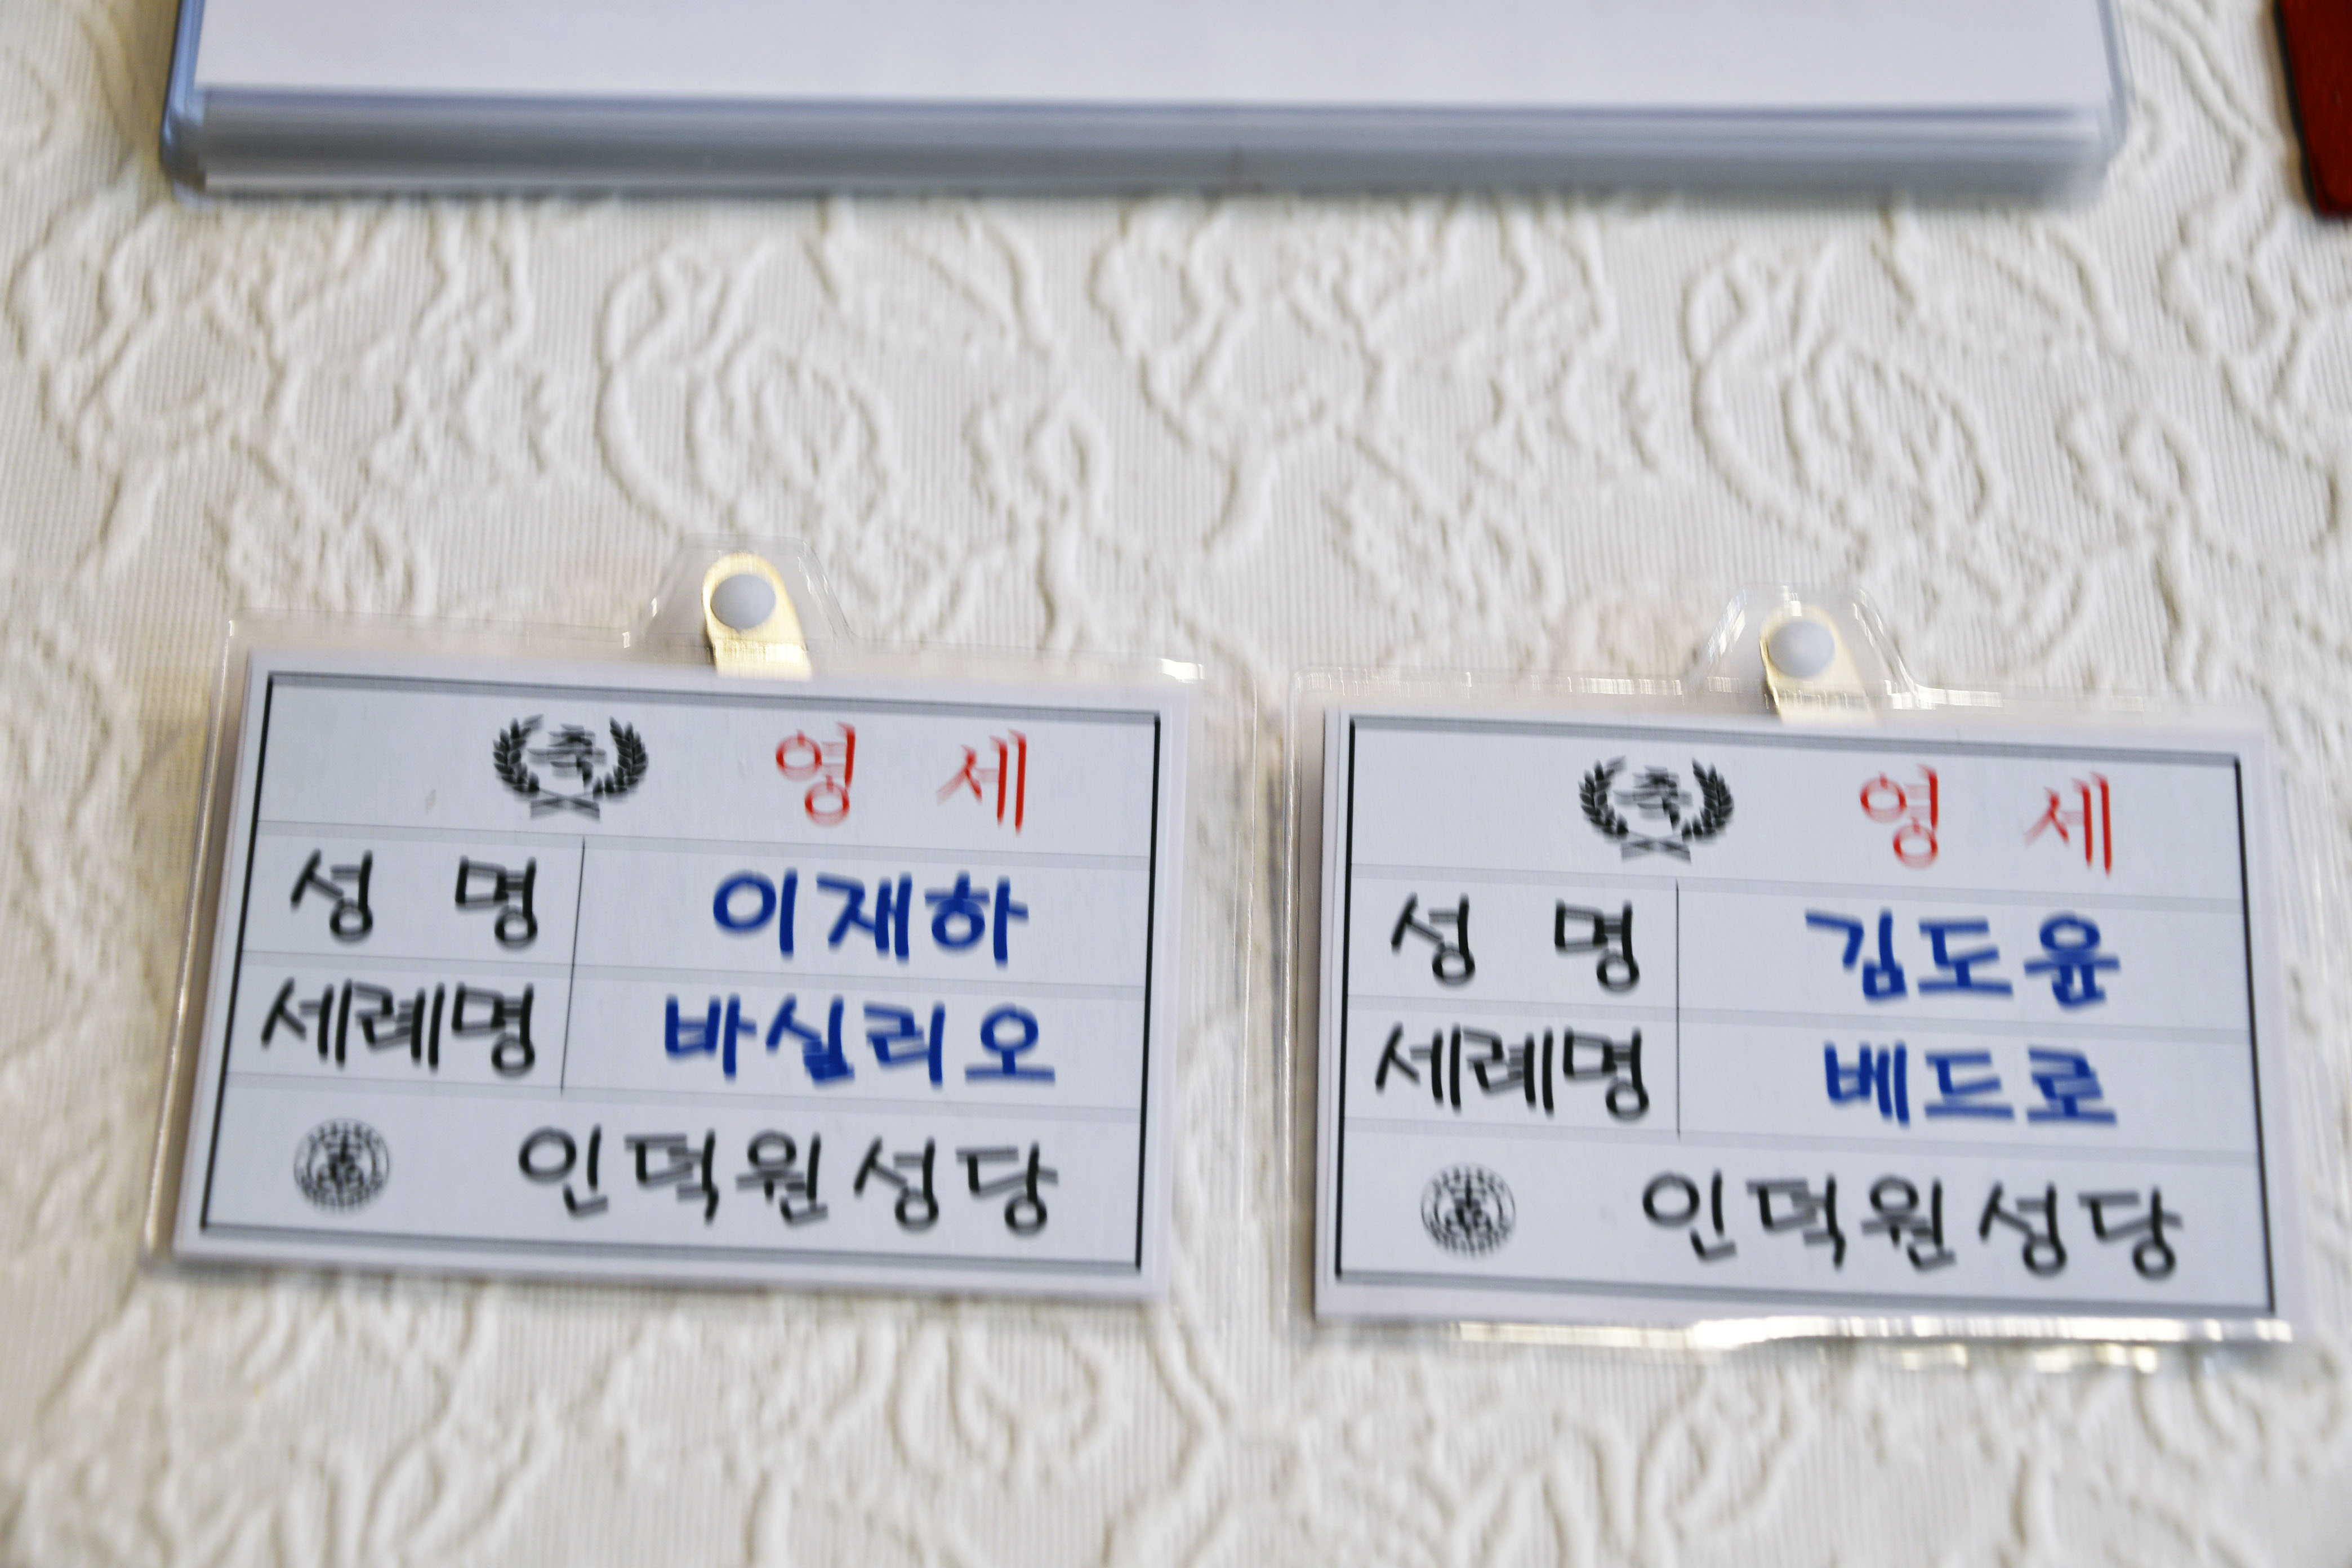 축 영 세
성 명 이재하
세례명 바실리오
인덕원성당
축 영 세
성 명 김도윤
세례명 베드로
인덕원성당